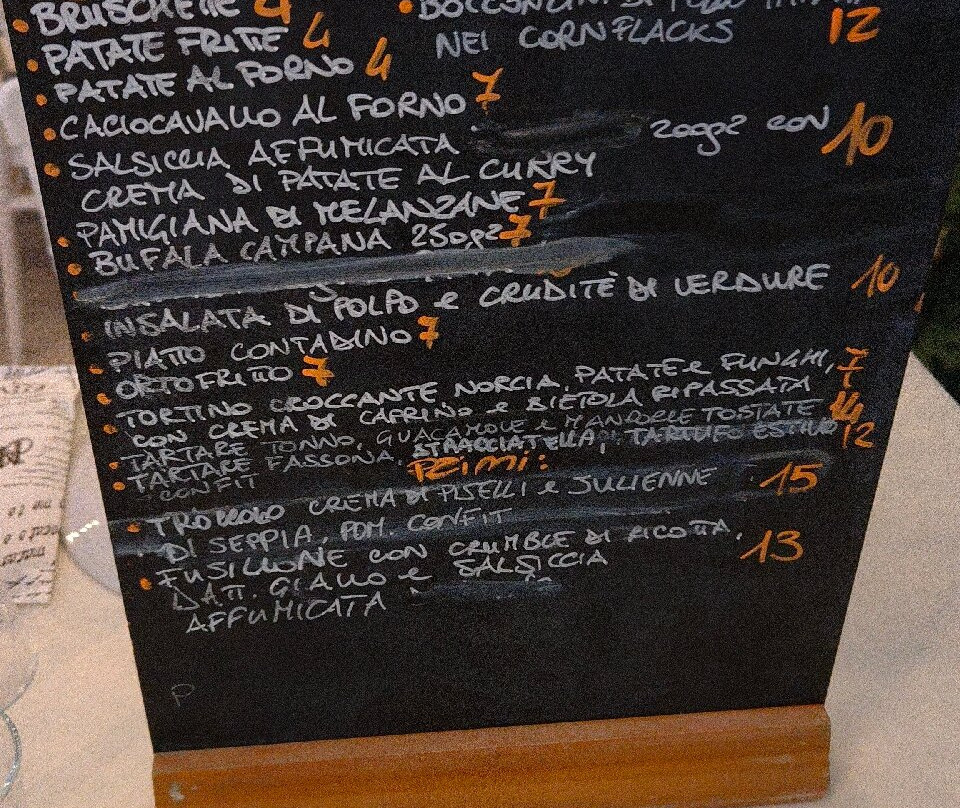 BRUSCHETTE 4
BOCCONCINI DI
PATATE FRITTE 4
NEI CORNFLACKS 12
PATATE AL FORNO 4
CACIOCAVALLO AL FORNO 7
SALSICCIA AFFUMICATA 200gr CON 10
CREMA DI PATATE AL CURRY
PAMIGIANA DI MELANZANE 7
BUFALA CAMPANA 250gr 7
INSALATA DI POLPO e CRUDITÈ DI VERDURE 10
PIATTO CONTADINO 7
ORTOFRITTO 7
TORTINO CROCCANTE NORCIA, PATATE e FUNGHI, 7
CON CREMA DI CAPRINO e BIETOLA RIPASSATA
TARTARE TONNO, GUACAMOLE e MANDORLE TOSTATE 14
TARTARE FASSONA, STRACCIATELLA, TARTUFO ESTIVO 12
CONFIT
PRIMI:
TROCCOLO CREMA DI PISELLI e JULIENNE 15
DI SEPPIA, POM. CONFIT
FUSILLONE CON CRUMBLE DI RICOTTA, 13
DATT. GIALLO e SALSICCIA
AFFUMICATA
P